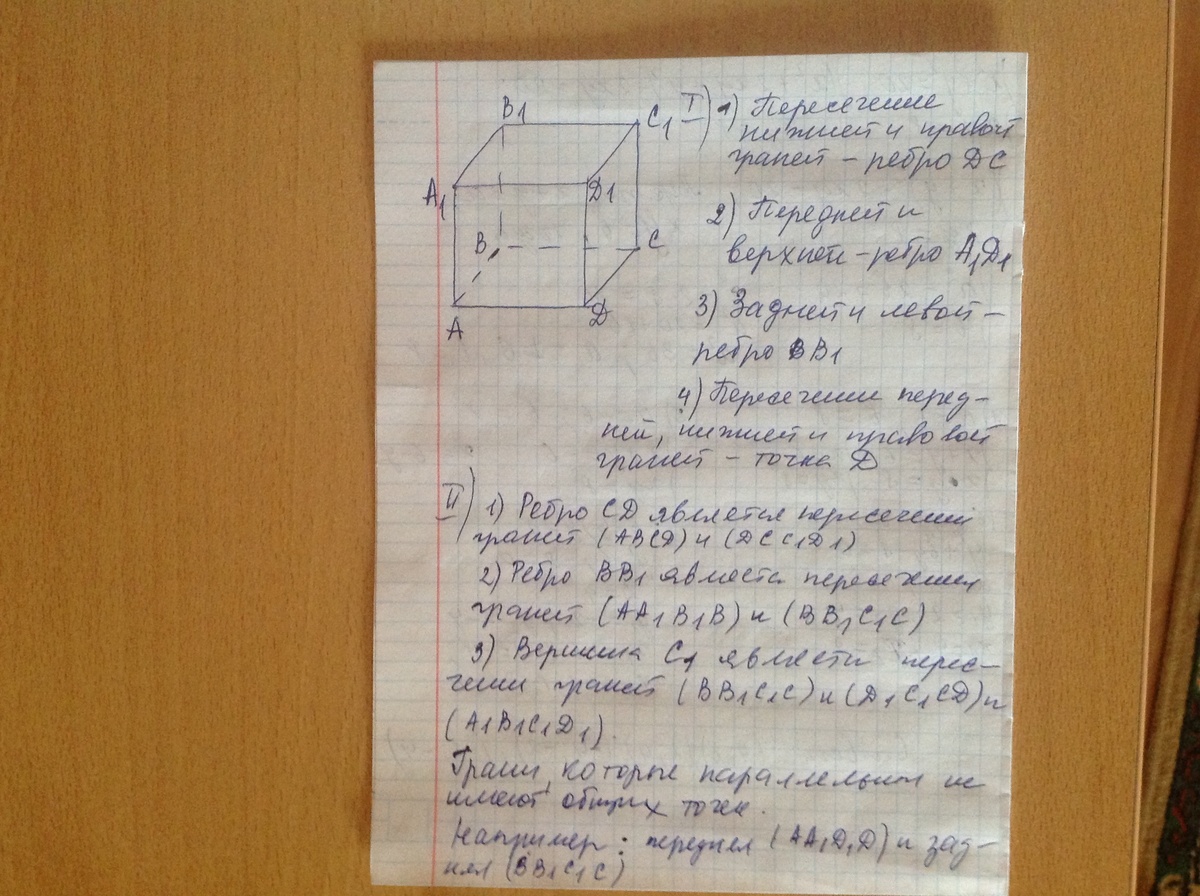 B1
C1
A1
D1
B
C
A
Д
I) 1) Пересечение
нижней и правой
граней – ребро ДС
2) Передней и
верхней – ребро A1Д1
3) Задней и левой –
ребро BB1
4) Пересечении перед-
ней, нижней и правовой
граней – точка Д
II) 1) Ребро СД является пересечении
граней (АВСД) и (ДСС1Д1)
2) Ребро ВВ1 является пересечении
граней (АА1В1В) и (ВВ1С1С)
3) Вершина С1 является перес-
чении граней (ВВ1С1С) и (Д1С1СД) и
(А1В1С1Д1).
Грани, которые параллельны не
имеют общих точек.
Например: передняя (АА1Д1Д) и зад-
няя (ВВ1С1С)